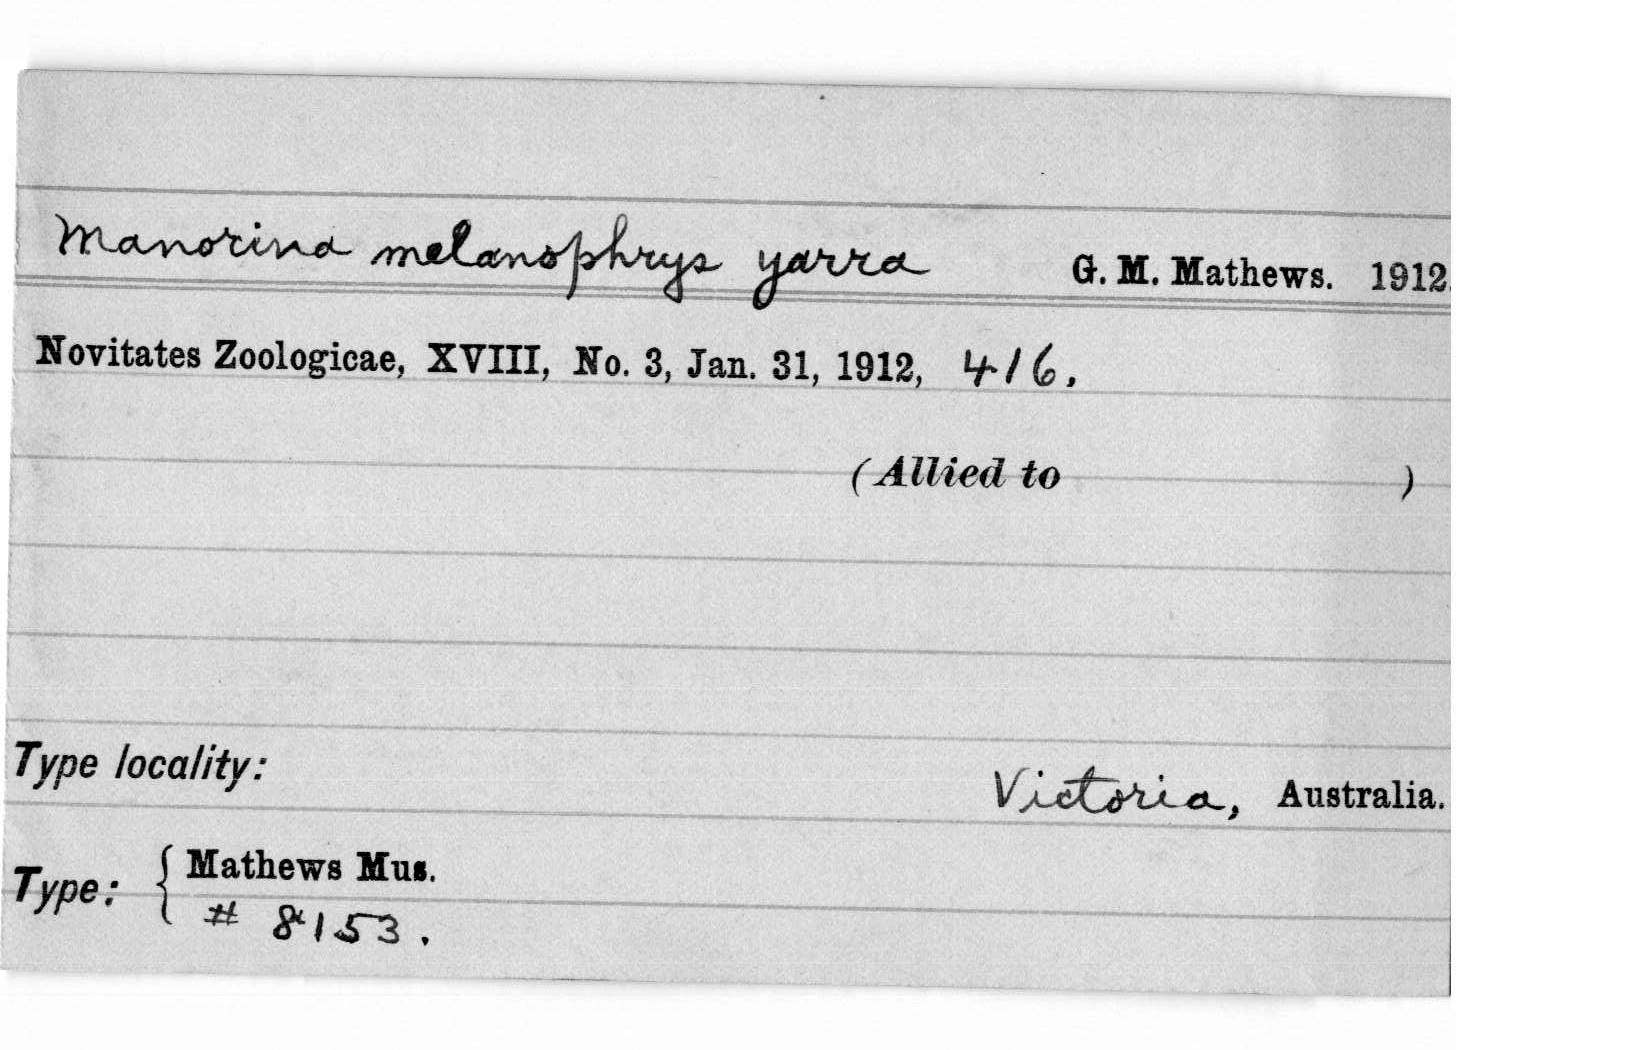 Manorina melanophrys yarra G. M. Mathews. 1912.
Novitates Zoologicae, XVIII, No. 3, Jan. 31, 1912, 416.
(Allied to )
Type locality:
Victoria, Australia.
Type: { Mathews Mus.
# 8153.